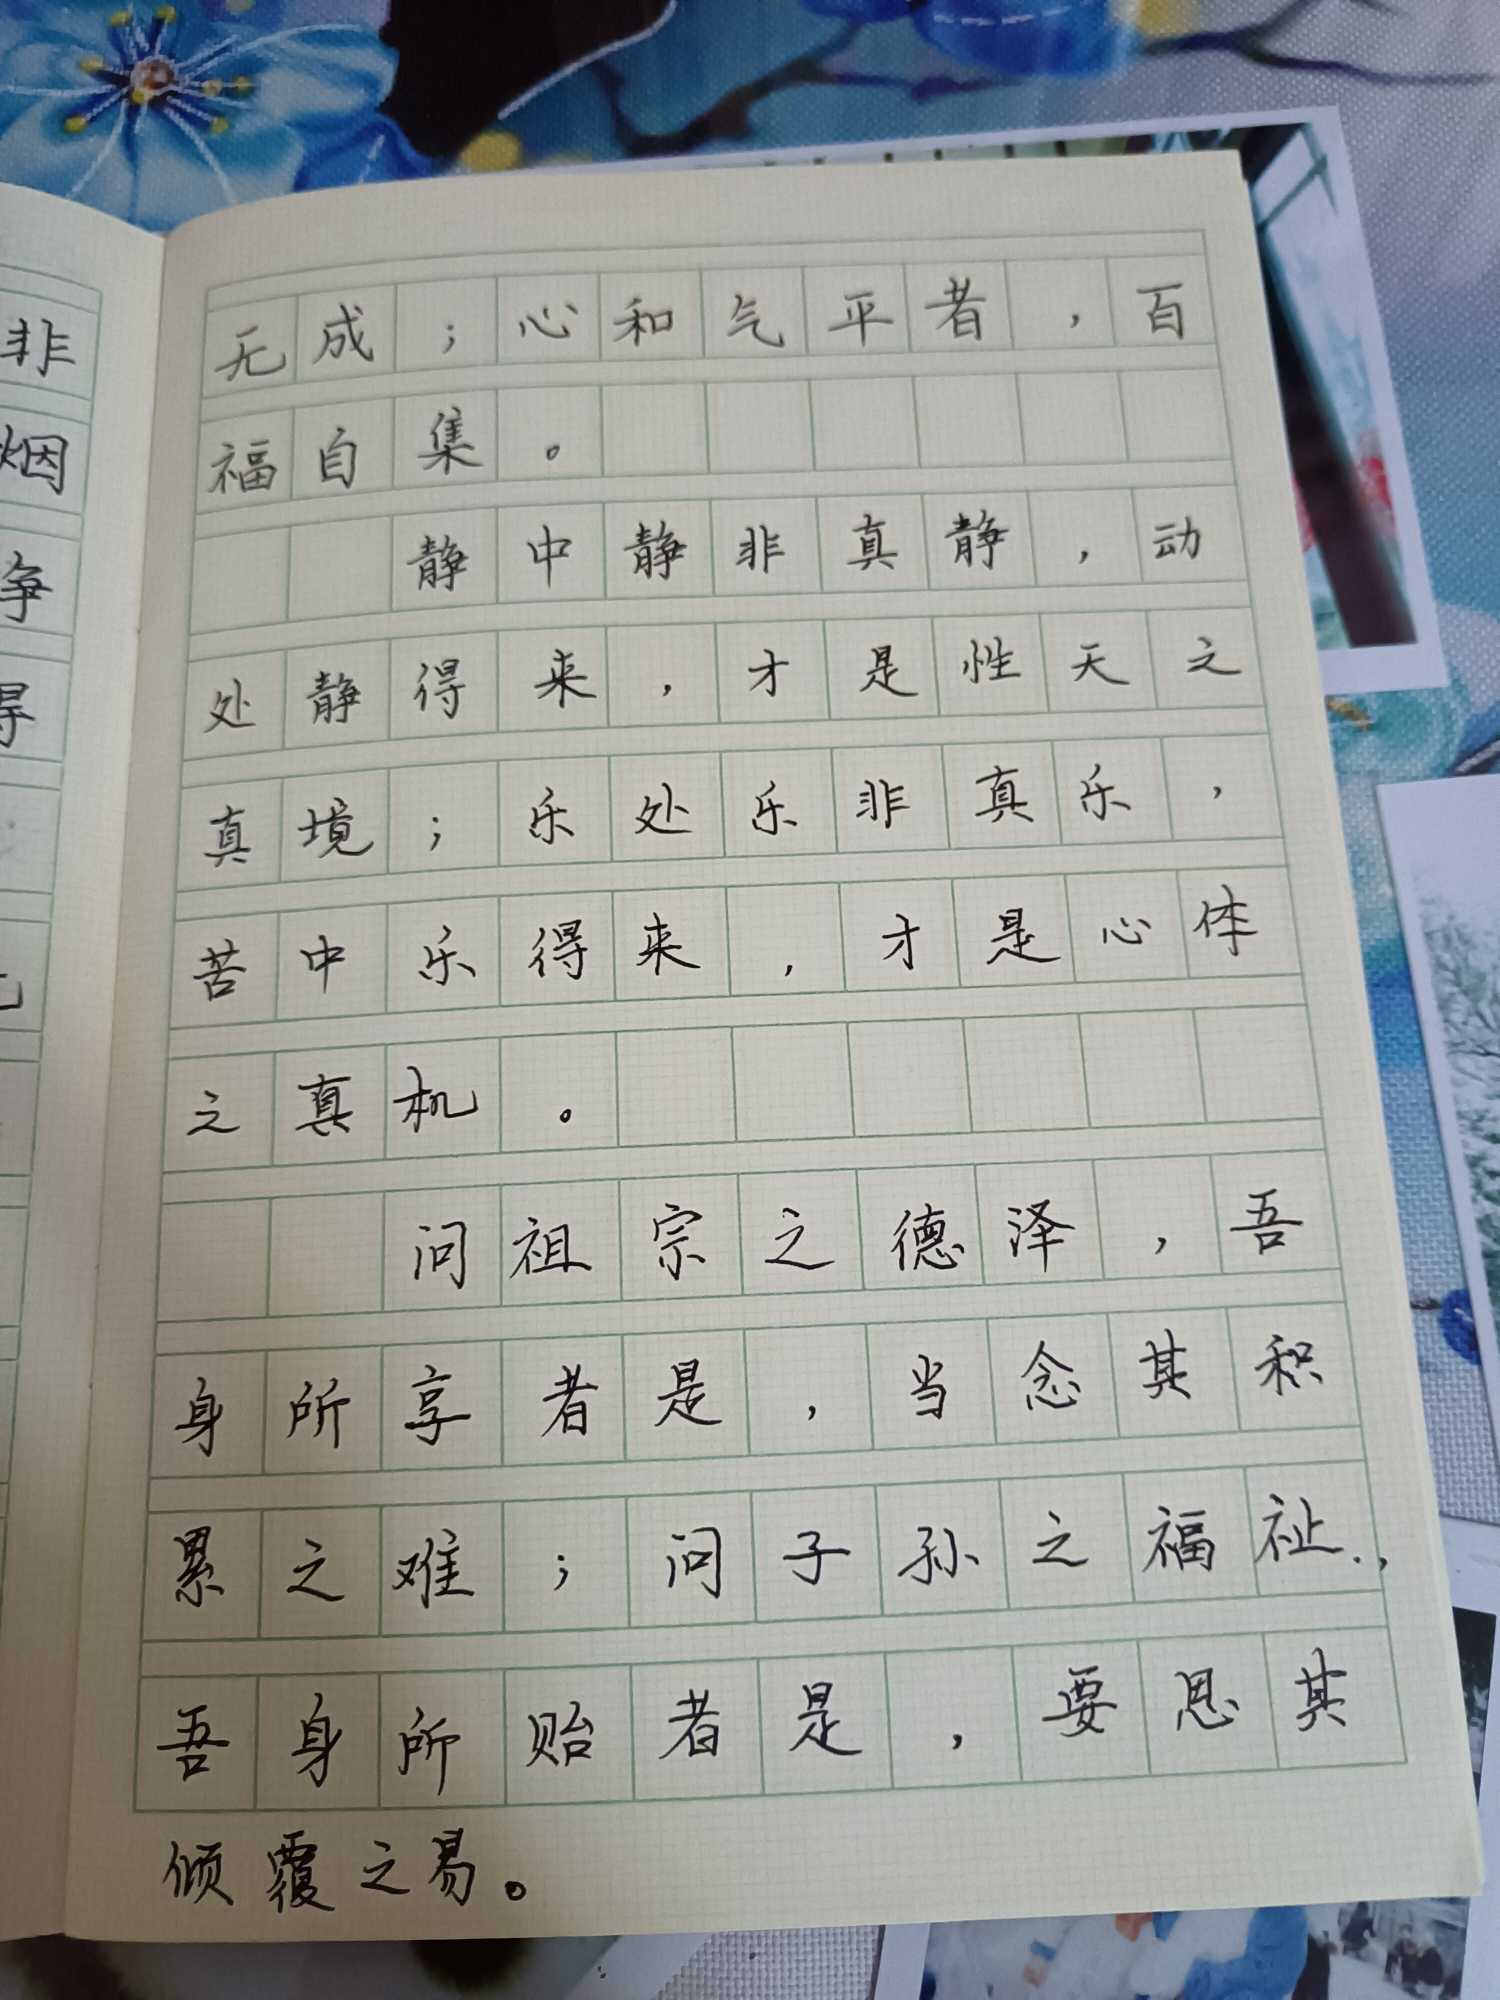 非
烟
争
得
无成；心和气平者，百
福自集。
静中静非真静，动
处静得来，才是性天之
真境；乐处乐非真乐，
苦中乐得来，才是心体
之真机。
问祖宗之德泽，吾
身所享者是，当念其积
累之难；问子孙之福祉，
吾身所贻者是，要思其
倾覆之易。